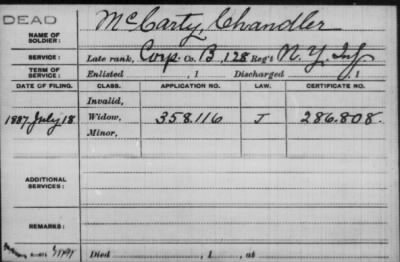 DEAD
NAME OF SOLDIER: McCarty, Chandler
SERVICE: Late rank, Corp. Co. B, 128 Reg't N.Y. Inf
TERM OF SERVICE: Enlisted , 1 Discharged , 1
DATE OF FILING. CLASS. APPLICATION NO. LAW. CERTIFICATE NO.
Invalid,
1887 July 18 Widow, 358.116 J 286.808.
Minor,
ADDITIONAL SERVICES:
REMARKS:
Died , 1 , at